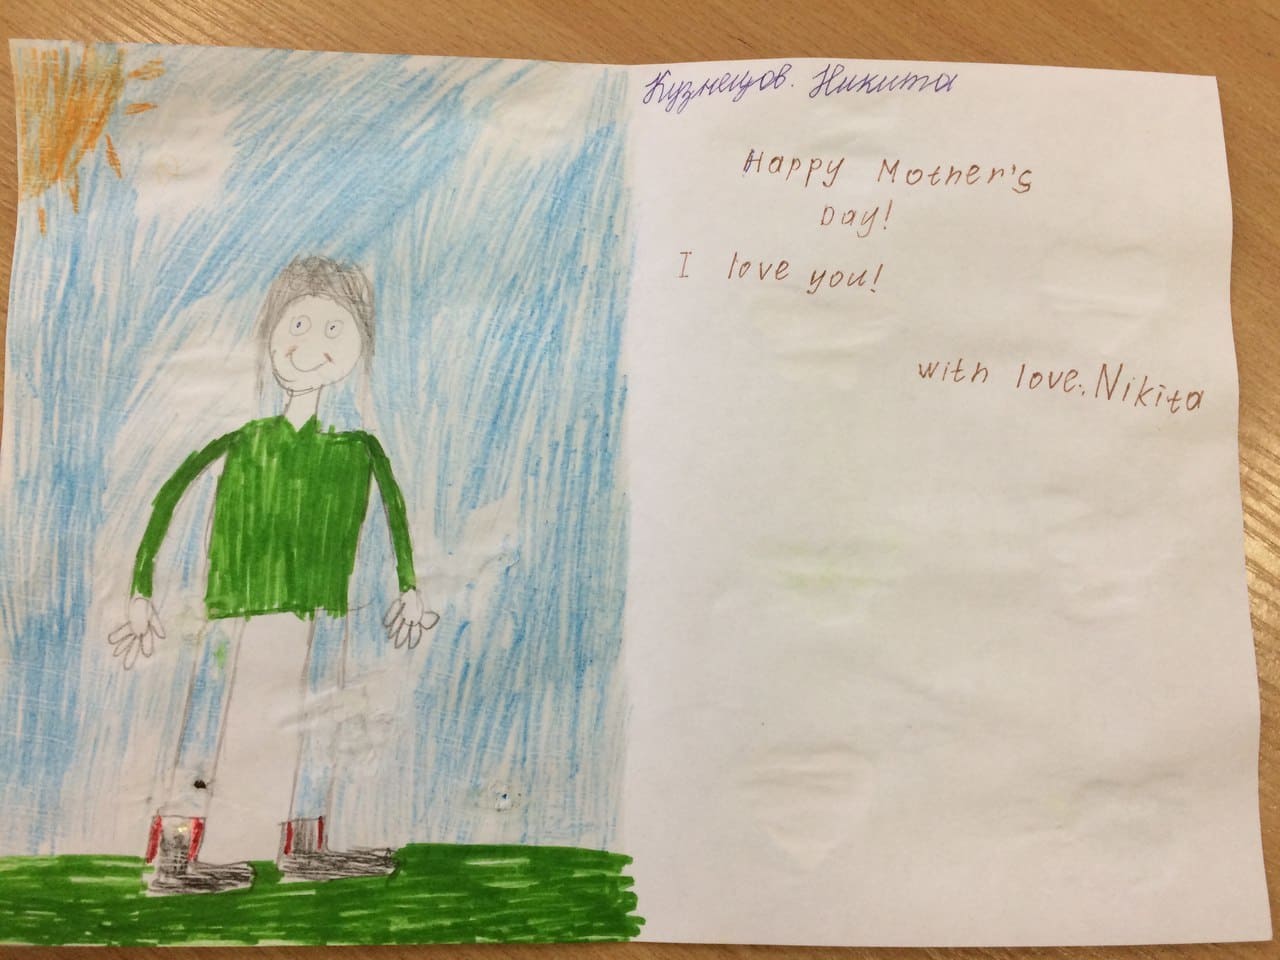 Кузнецов. Никита
Happy Mother's
Day!
I love you!
with love, Nikita